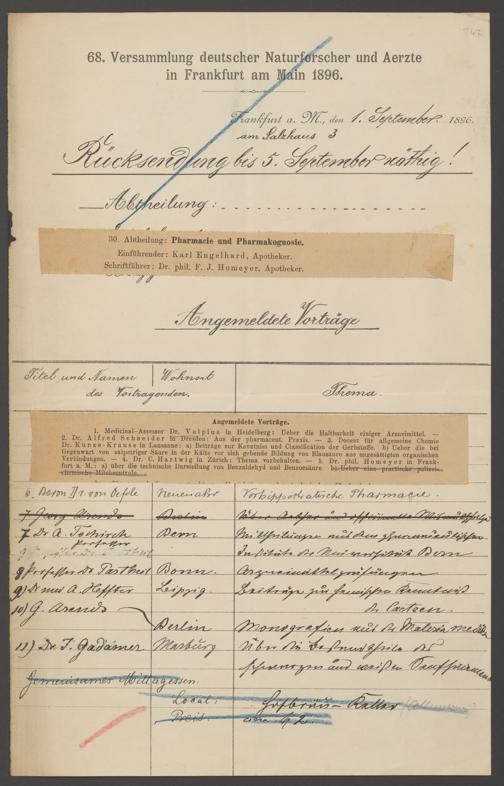 747
68. Versammlung deutscher Naturforscher und Aerzte
in Frankfurt am Main 1896.
Frankfurt a. M., den 1. September. 1896.
am Salzhaus 3
Rücksendung bis 5. September nöthig!
Abtheilung:
30. Abtheilung: Pharmacie und Pharmakognosie.
Einführender: Karl Engelhard, Apotheker.
Schriftführer: Dr. phil. F. J. Homeyer, Apotheker.
Angemeldete Vorträge
Titel und Namen des Vortragenden.
Wohnort
Thema.
Angemeldete Vorträge.
1. Medicinal-Assessor Dr. Vulpius in Heidelberg: Ueber die Haltbarkeit einiger Arzneimittel. —
2. Dr. Alfred Schneider in Dresden: Aus der pharmaceut. Praxis. — 3. Docent für allgemeine Chemie
Dr. Kunze-Krause in Lausanne: a) Beiträge zur Kenntniss und Classification der Gerbstoffe. b) Ueber die bei
Gegenwart von salpetriger Säure in der Kälte vor sich gehende Bildung von Blausäure aus ungesättigten organischen
Verbindungen. — 4. Dr. C. Hartwig in Zürich: Thema vorbehalten. — 5. Dr. phil. Homeyer in Frank-
furt a. M.: a) über die technische Darstellung von Benzaldehyd und Benzoesäure. b) Ueber eine practische polizei-
chemische Milchcontrole.
6. Baron Dr. von Oefele Neuenahr Vorhippokratische Pharmacie.
7. Georg Arends Berlin
7 Dr A. Tschirch Bern Mittheilungen aus dem pharmaceutischen
Professor
Institute der Universität Bern
8 Professor Dr. Partheil Bonn. Arzneimittelprüfungen
9) Dr med A. Heffter Leipzig. Beiträge zur chemischen Kenntniss
der Cacteen.
10) G. Arends
Berlin Monografien aus der Materia medica
Dr J. Gadamer Marburg Über die Bestandtheile des
schwarzen und weissen Senfsamens
Gemeinsames Mittagessen.
Local: Hofbräu-Keller
Preis: